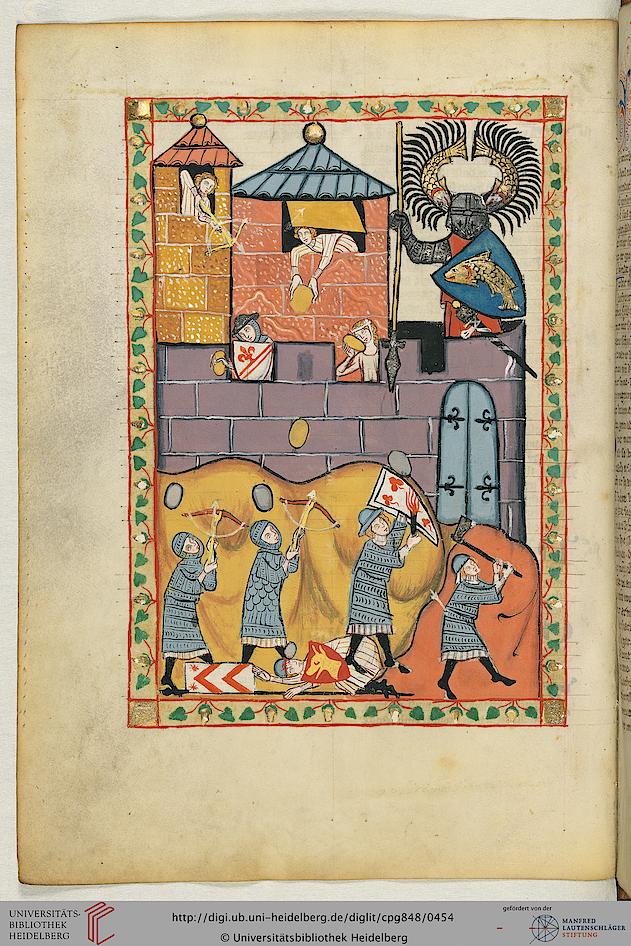 UNIVERSITÄTS-
BIBLIOTHEK
HEIDELBERG
http://digi.ub.uni-heidelberg.de/diglit/cpg848/0454
© Universitätsbibliothek Heidelberg
gefördert von der
MANFRED
LAUTENSCHLÄGER
STIFTUNG